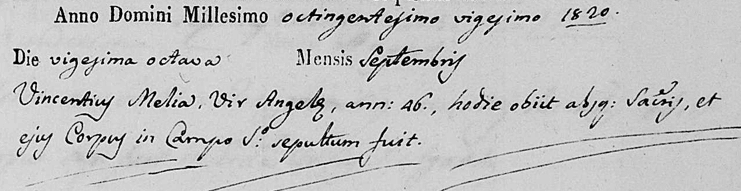 Anno Domini Millesimo octingentesimo vigesimo 1820.
Die vigesima octava Mensis Septembris
Vincentius Melia, Vir Angelæ, ann: 46., hodie obiit absq: Sacris, et
ejus Corpus in Campo S.º sepultum fuit.